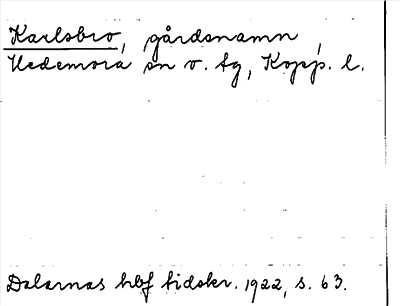 Karlsbro, gårdsnamn,
Hedemora sn o. tg, Kopp. l.
Dalarnas hbf tidskr. 1922, s. 63.